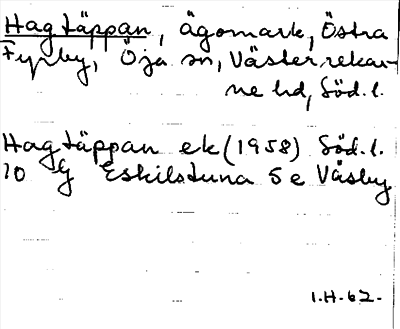 Hagtäppan, ägomark, Östra
Fyrby, Öja sn, Västerrekar-
ne hd, Söd.l.
Hagtäppan ek (1958) Söd.l.
10 G Eskilstuna 5 e Våsby
I.H.62.